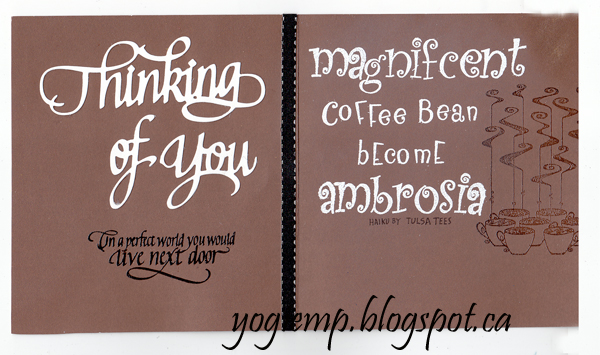 Thinking
of You
In a perfect world you would
live next door
magnifcent
coffee Bean
become
ambrosia
HAIKU BY TULSA TEES
yogiemp.blogspot.ca